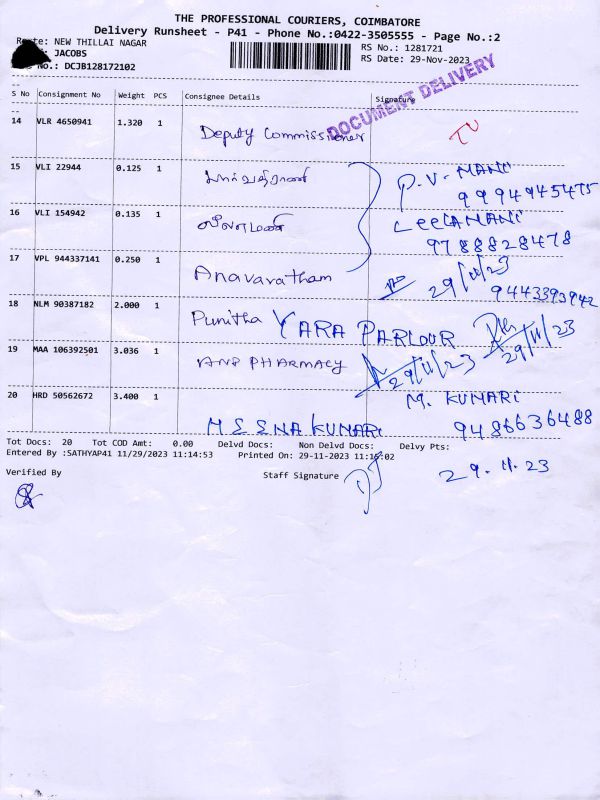 THE PROFESSIONAL COURIERS, COIMBATORE
Delivery Runsheet - P41 - Phone No.:0422-3505555 - Page No.:2
Route: NEW THILLAI NAGAR
RS No.: 1281721
: JACOBS
RS Date: 29-Nov-2023
No.: DCJB128172102
DOCUMENT DELIVERY
S No Consignment No Weight PCS Consignee Details Signature
14 VLR 4650941 1.320 1 Deputy Commissioner
15 VLI 22944 0.125 1 P.V. MANI
9994945475
16 VLI 154942 0.135 1 லீலாமணி LEELAMANI
9788828478
17 VPL 944337141 0.250 1 Anavaratham 29/11/23
9443393942
18 NLM 90387182 2.000 1 Punitha YARA PARLOUR 29/11/23
19 MAA 106392501 3.036 1 ANS PHARMACY 29/11/23
20 HRD 50562672 3.400 1 M. KUMARI
MEENA KUMARI 9486636488
Tot Docs: 20 Tot COD Amt: 0.00 Delvd Docs: Non Delvd Docs: Delvy Pts:
Entered By :SATHYAP41 11/29/2023 11:14:53 Printed On: 29-11-2023 11:16:02
Verified By Staff Signature 29.11.23